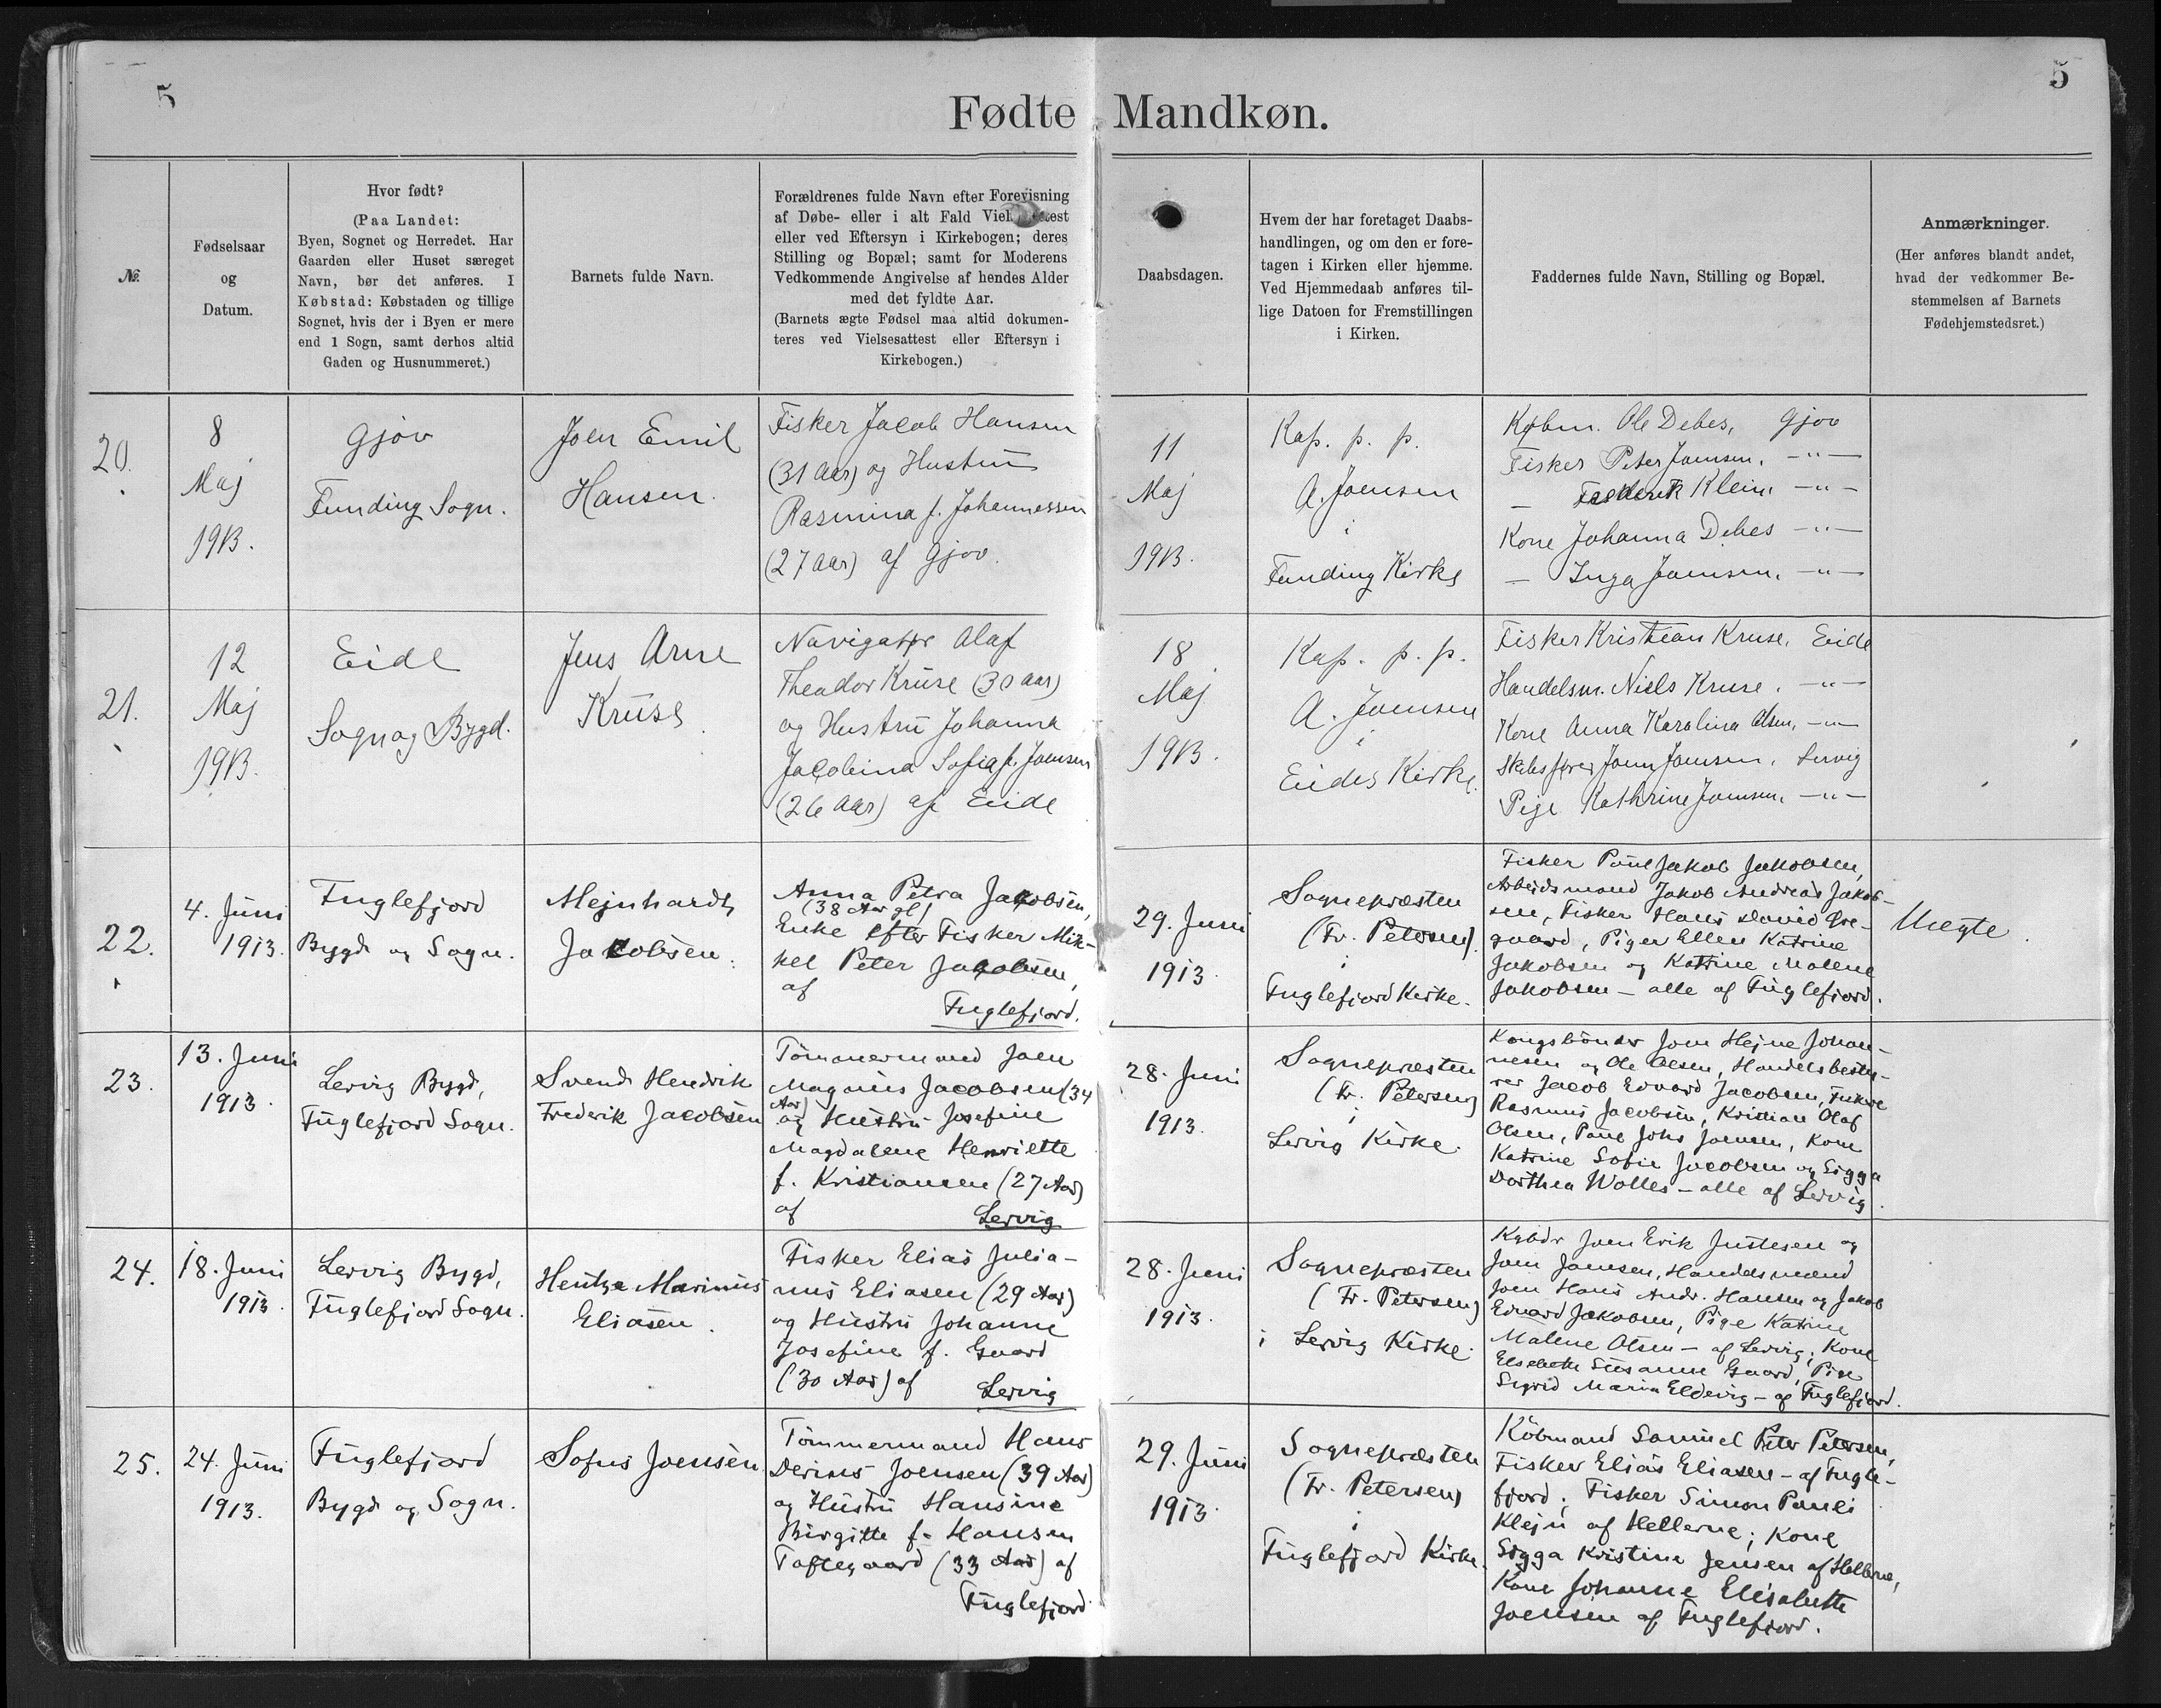 5
5
Fødte Mandkøn.
№
Fødselsaar
og
Datum.
Hvor født?
(Paa Landet:
Byen, Sognet og Herredet. Har
Gaarden eller Huset særeget
Navn, bør det anføres. I
Købstad: Købstaden og tillige
Sognet, hvis der i Byen er mere
end 1 Sogn, samt derhos altid
Gaden og Husnummeret.)
Barnets fulde Navn.
Forældrenes fulde Navn efter Forevisning
af Døbe- eller i alt Fald
eller ved Eftersyn i Kirkebogen; deres
Stilling og Bopæl; samt for Moderens
Vedkommende Angivelse af hendes Alder
med det fyldte Aar.
(Barnets ægte Fødsel maa altid dokumen-
teres ved Vielsesattest eller Eftersyn i
Kirkebogen.)
Daabsdagen.
Hvem der har foretaget Daabs-
handlingen, og om den er fore-
tagen i Kirken eller hjemme.
Ved Hjemmedaab anføres til-
lige Datoen for Fremstillingen
i Kirken.
Faddernes fulde Navn, Stilling og Bopæl.
Anmærkninger.
(Her anføres blandt andet,
hvad der vedkommer Be-
stemmelsen af Barnets
Fødehjemstedsret.)
20.
8
Maj
1913.
Gjov
Funding Sogn.
Joen Emil
Hansen.
Fisker Jacob Hansen
(31 Aar) og Hustru
Rasmina f. Johannessen
(27 Aar) af Gjov.
11
Maj
1913.
Kap. p. p.
A. Joensen
i
Funding Kirke
Købm. Ole Debes, Gjov
Fisker Peter Joensen, -"-
— Frederik Klein, -"-
Kone Johanna Debes -"-
— Inga Joensen, -"-
21.
12
Maj
1913.
Eide
Sogn og Bygd.
Jens Arne
Kruse
Navigatør Olaf
Theodor Kruse (30 Aar)
og Hustru Johanna
Jacobina Sofia f. Joensen
(26 Aar) af Eide
18
Maj
1913.
Kap. p. p.
A. Joensen
i
Eides Kirke.
Fisker Kristian Kruse, Eide
Handelsm. Niels Kruse, -"-
Kone Anna Karolina Olsen, -"-
Skibsfører Joen Joensen, Lervig
Pige Kathrine Joensen, -"-
22.
4. Juni
1913.
Fuglefjord
Bygd og Sogn.
Mejnhardt
Jacobsen.
Anna Petra Jacobsen,
(38 Aar gl)
Enke efter Fisker Mik-
kel Peter Jacobsen,
af
Fuglefjord.
29. Juni
1913.
Sognepræsten
(Fr. Petersen)
i
Fuglefjord Kirke.
Fisker Poul Jakob Jakobsen,
Arbejdsmand Jakob Andreas Jakob-
sen, Fisker Hans David Øre-
gaard, Piger Ellen Katrine
Jakobsen og Katrine Malene
Jakobsen — alle af Fuglefjord.
Uægte.
23.
13. Juni
1913.
Lervig Bygd,
Fuglefjord Sogn.
Svend Hendrik
Frederik Jacobsen
Tömmermand Joen
Magnus Jacobsen (34
Aar)
og Hustru Josefine
Magdalene Henriette
f. Kristiansen (27 Aar)
af
Lervig
28. Juni
1913.
Sognepræsten
(Fr. Petersen)
i
Lervig Kirke.
Kongsbönder Joen Hejne Johan-
nesen og Ole Olsen, Handelsbesty-
rer Jacob Edvard Jacobsen, Fiskere
Rasmus Jacobsen, Kristian Olaf
Olsen, Poul Johs Joensen, Kone
Katrine Sofie Jacobsen og Sigga
Dorthea Wolles — alle af Lervig.
24.
18. Juni
1913.
Lervig Bygd,
Fuglefjord Sogn.
Hentze Marinus
Eliasen.
Fisker Elias Julia-
nus Eliasen (29 Aar)
og Hustru Johanne
Josefine f. Gaard
(30 Aar) af
Lervig
28. Juni
1913.
Sognepræsten
(Fr. Petersen)
i Lervig Kirke.
Kgbdr Joen Erik Justesen og
Joen Joensen, Handelsmænd
Joen Hans Andr. Hansen og Jakob
Edvard Jakobsen, Pige Katrine
Malene Olsen — af Lervig; Kone
Elsebeth Susanne Gaard, Pige
Sigrid Maria Eldevig — af Fuglefjord.
25.
24. Juni
1913.
Fuglefjord
Bygd og Sogn.
Sofus Joensen
Tömmermand Hans
Derius Joensen (39 Aar)
og Hustru Hansine
Birgitte f. Hansen
Toftegaard (33 Aar) af
Fuglefjord
29. Juni
1913.
Sognepræsten
(Fr. Petersen)
i
Fuglefjord Kirke.
Köbmand Samuel Peter Petersen,
Fisker Elias Eliasen — af Fugle-
fjord; Fisker Simon Pauli
Klejn af Hellerne; Kone
Sigga Kristine Jensen af Hellerne,
Kone Johanne Elisabeth
Joensen af Fuglefjord.